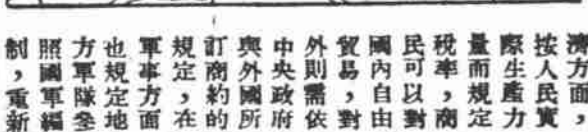 濟方面，
按人民實
際生產力
量而規定
稅率，商
民可以對
國內自由
貿易，對
外則需依
中央政府
與外國所
訂商約的
規定，在
軍事方面
也規定地
方軍隊參
照國軍編
制，重新